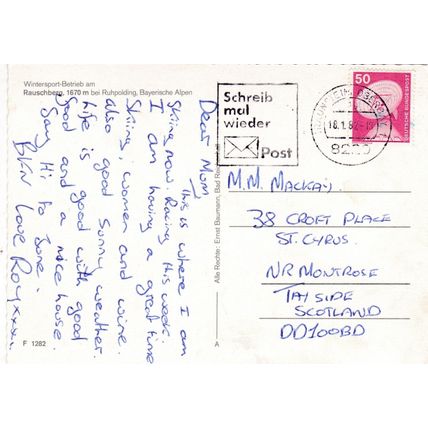 Wintersport-Betrieb am
Rauschberg, 1670 m bei Ruhpolding, Bayerische Alpen
Dear Mom
This is where I am
Skiing now Racing this week.
I am having a great time
Skiing, women and wine.
also good sunny weather.
Life is good with good
food and a nice house.
Say Hi to June.
BKN Love Royxxxx.
F 1282
A
Alle Rechte: Ernst Baumann, Bad Reichenhall
Schreib
mal
wieder
Post
18.1.82-19
50
DEUTSCHE BUNDESPOST
M.M. MACKAY
38 CROFT PLACE
ST. CYRUS.
NR MONTROSE
TAYSIDE
SCOTLAND
DD100BD